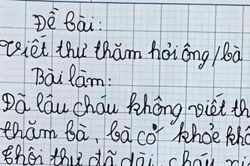 Đề bài:
Viết thư thăm hỏi ông/bà
Bài làm:
Đã lâu cháu không viết th
thăm bà, bà có khoẻ khô
thư đã dài cháu